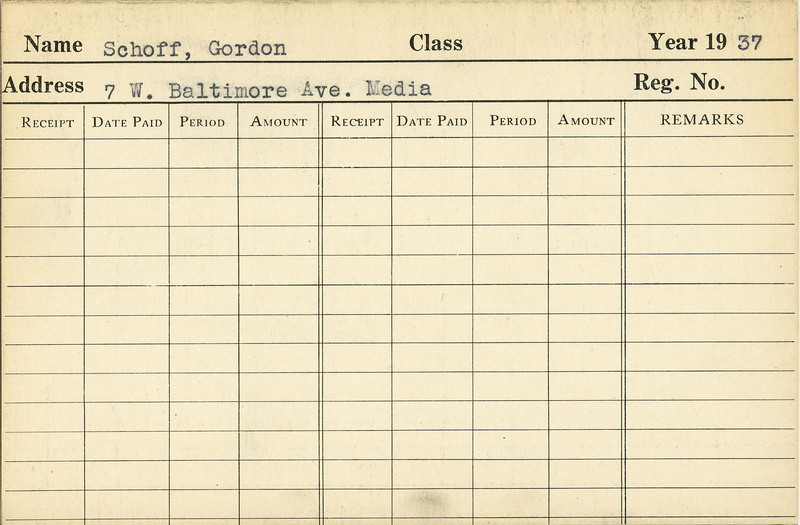 Name Schoff, Gordon Class Year 19 37
Address 7 W. Baltimore Ave. Media Reg. No.
RECEIPT DATE PAID PERIOD AMOUNT RECEIPT DATE PAID PERIOD AMOUNT REMARKS